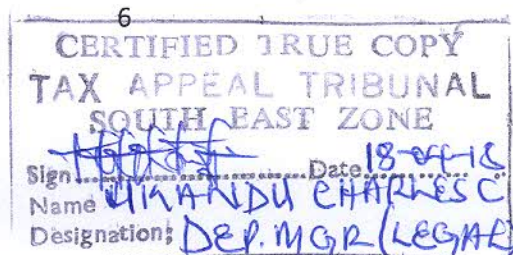 6
CERTIFIED TRUE COPY
TAX APPEAL TRIBUNAL
SOUTH EAST ZONE
Sign.................Date 18-04-18
Name CHARLES C
Designation: DEP. MGR (LEGAL)